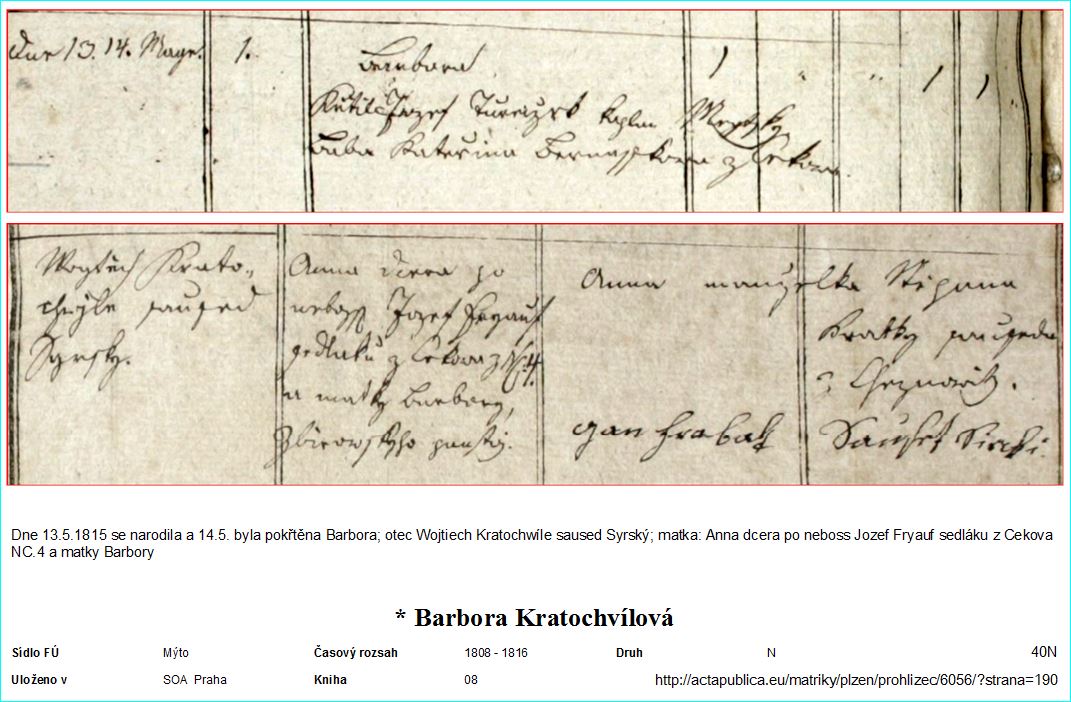 Dne 13. 14. Mage. 1. Barbora 1 " " 1 1
Křtil Jozef Tureczek kaplan Meytsky
Baba Kateřina z Cekowa.
Wogtěch Krato-
chwjle saused
Syrsky.
Anna dcera po
neboss Jozef Fryauf
sedlaku z Cekowa z NC 4.
a matky Barbory,
Zbirowskyho panstwj.
Anna manzelka Stipana
Kratky sauseda
z Cheznowitz.
Jan Hrabak Sauset Sirski.
Dne 13.5.1815 se narodila a 14.5. byla pokřtěna Barbora; otec Wojtiech Kratochwíle saused Syrský; matka: Anna dcera po neboss Jozef Fryauf sedláku z Cekova
NC.4 a matky Barbory
* Barbora Kratochvílová
Sídlo FÚ Mýto Časový rozsah 1808 - 1816 Druh N 40N
Uloženo v SOA Praha Kniha 08 http://actapublica.eu/matriky/plzen/prohlizec/6056/?strana=190